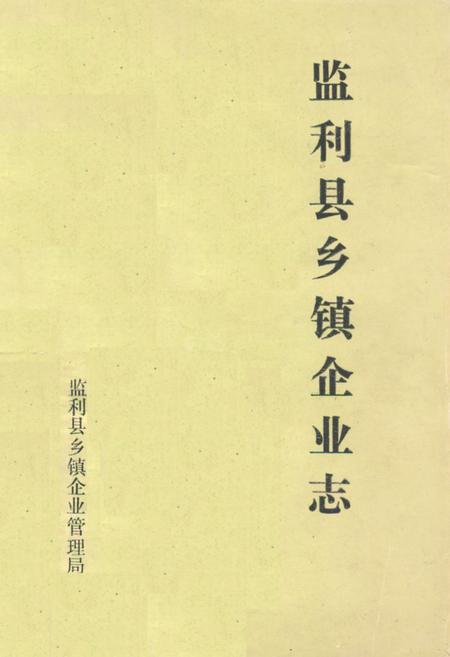 监利县乡镇企业志
监利县乡镇企业管理局